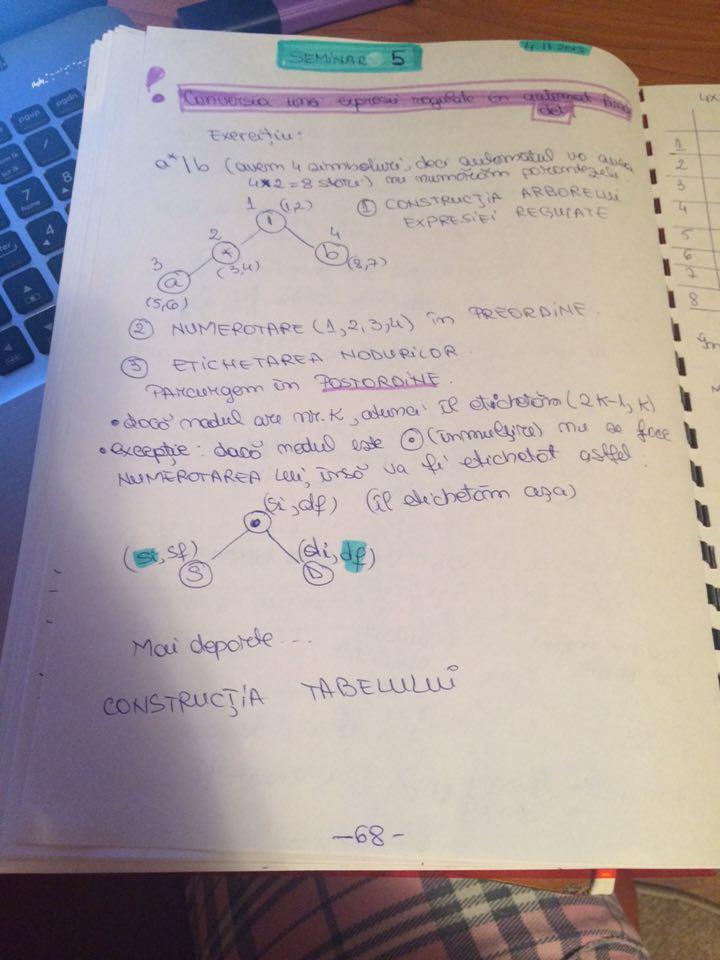 SEMINAR 5
4.11.2015
Conversia unei expresii regulate în automat finit
det
Exercițiu:
a*|b (avem 4 simboluri, deci automatul va avea
4*2=8 stări) nu numărăm parantezele
① CONSTRUCȚIA ARBORELUI
EXPRESIEI REGULATE
1 (1,2)
2 * (3,4)
4 b (8,7)
3 a (5,6)
② NUMEROTARE (1,2,3,4) în PREORDINE
③ ETICHETAREA NODURILOR
Parcurgem în POSTORDINE.
• dacă nodul are nr. K, atunci îl etichetăm (2K-1, K)
• excepție: dacă nodul este ⊙ (înmulțire) nu se face
NUMEROTAREA lui, însă va fi etichetat astfel:
(si, df) (îl etichetăm așa)
(si, sf) (di, df)
S D
Mai departe...
CONSTRUCȚIA TABELULUI
-68-
pgup
pgdn
7
home
8
4
1
2
3
4
5
6
7
8